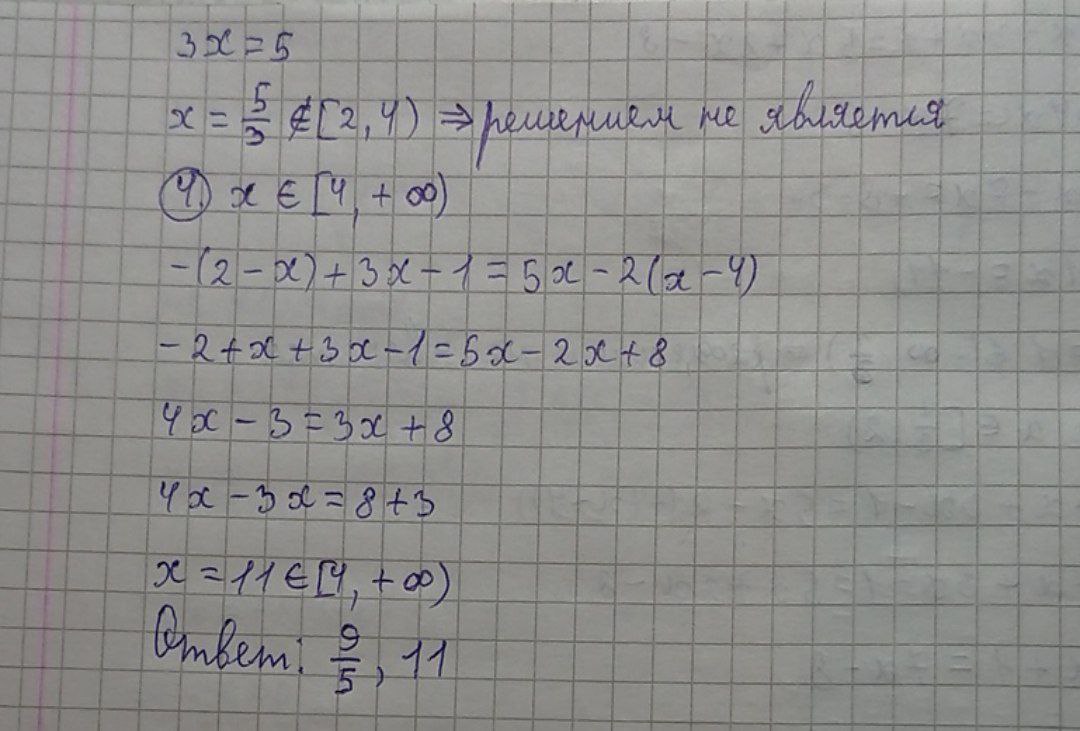 3x = 5
x = 5/3 ∉ [2, 4) ⇒ решением не является
4) x ∈ [4, + ∞)
-(2 - x) + 3x - 1 = 5x - 2(x - 4)
- 2 + x + 3x - 1 = 5x - 2x + 8
4x - 3 = 3x + 8
4x - 3x = 8 + 3
x = 11 ∈ [4, + ∞)
Ответ: 9/5, 11